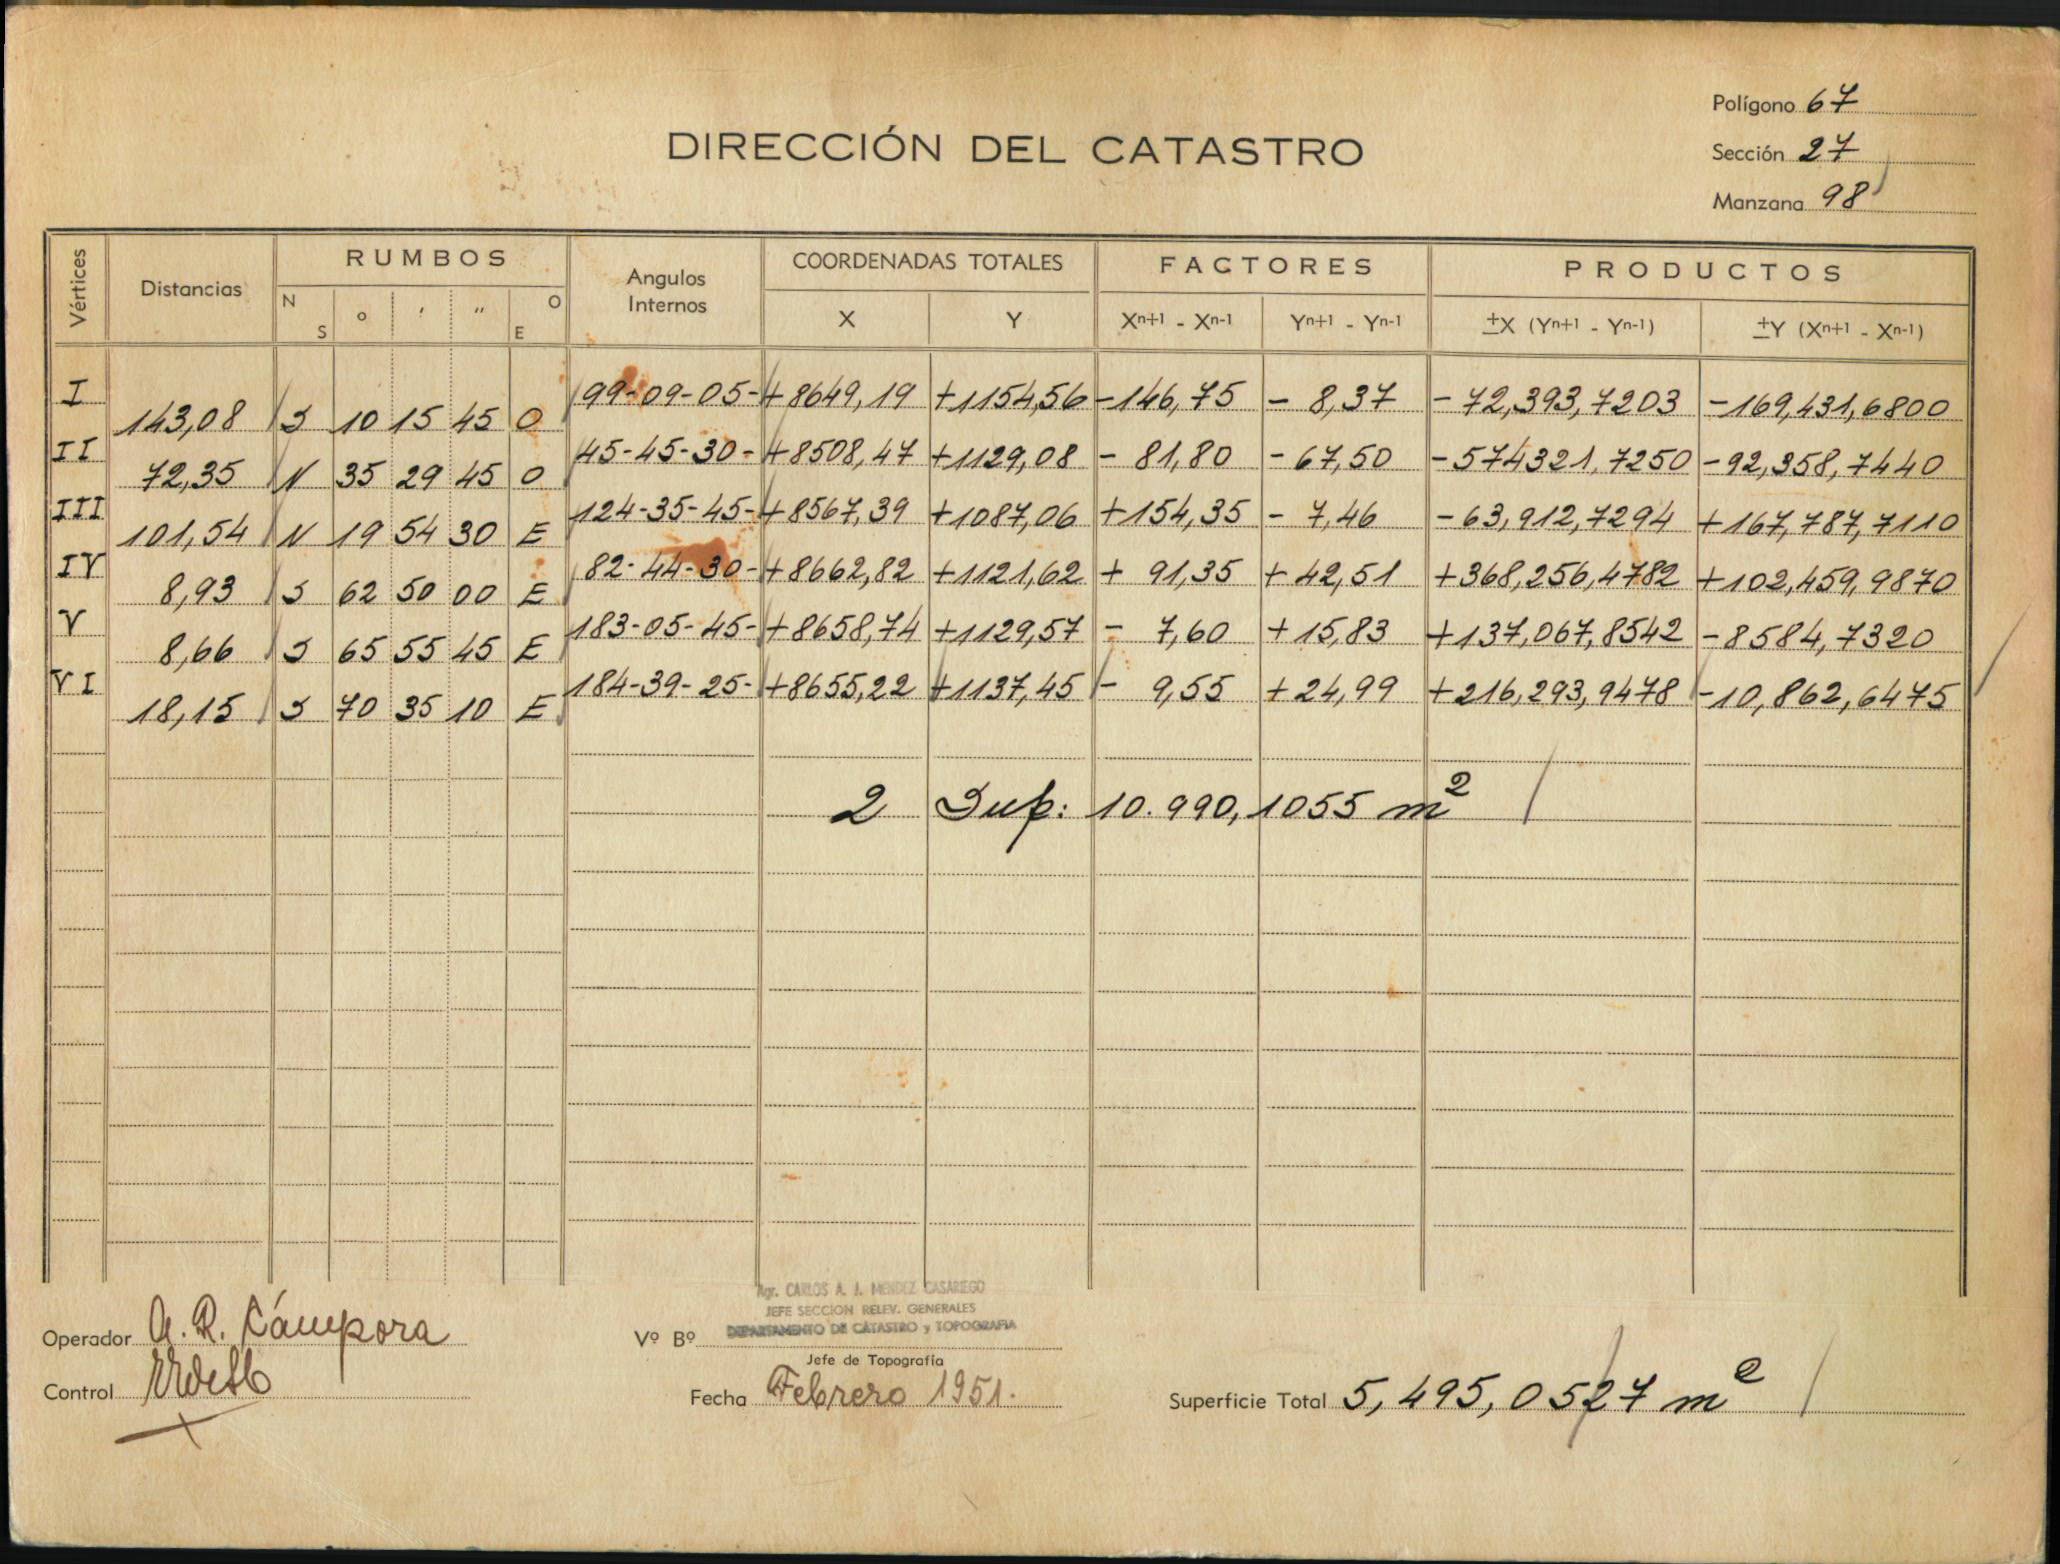 Polígono 67
DIRECCIÓN DEL CATASTRO
Sección 27
Manzana 98
Vértices Distancias RUMBOS Angulos Internos COORDENADAS TOTALES FACTORES PRODUCTOS
N S ° ' " O E X Y Xn+1 - Xn-1 Yn+1 - Yn-1 ±X (Yn+1 - Yn-1) ±Y (Xn+1 - Xn-1)
I 99-09-05- +8649,19 +1154,56 -146,75 - 8,37 -72,393,7203 -169,431,6800
143,08 S 10 15 45 O
II 45-45-30- +8508,47 +1129,08 - 81,80 - 67,50 -574321,7250 -92,358,7440
72,35 N 35 29 45 O
III 124-35-45- +8567,39 +1087,06 +154,35 - 7,46 -63,912,7294 +167,787,7110
101,54 N 19 54 30 E
IV 82-44-30- +8662,82 +1121,62 + 91,35 + 42,51 +368,256,4782 +102,459,9870
8,93 S 62 50 00 E
V 183-05-45- +8658,74 +1129,57 - 7,60 + 15,83 +137,067,8542 -8584,7320
8,66 S 65 55 45 E
VI 184-39-25- +8655,22 +1137,45 - 9,55 + 24,99 +216,293,9478 -10,862,6475
18,15 S 70 35 10 E
2 Sup: 10.990,1055 m2
Agr. CARLOS A. J. MENDEZ CASARIEGO
JEFE SECCION RELEV. GENERALES
DEPARTAMENTO DE CATASTRO y TOPOGRAFIA
Operador A. R. Cámpora
Vº Bº
Jefe de Topografía
Control
Fecha Febrero 1951.
Superficie Total 5,495,0527 m2